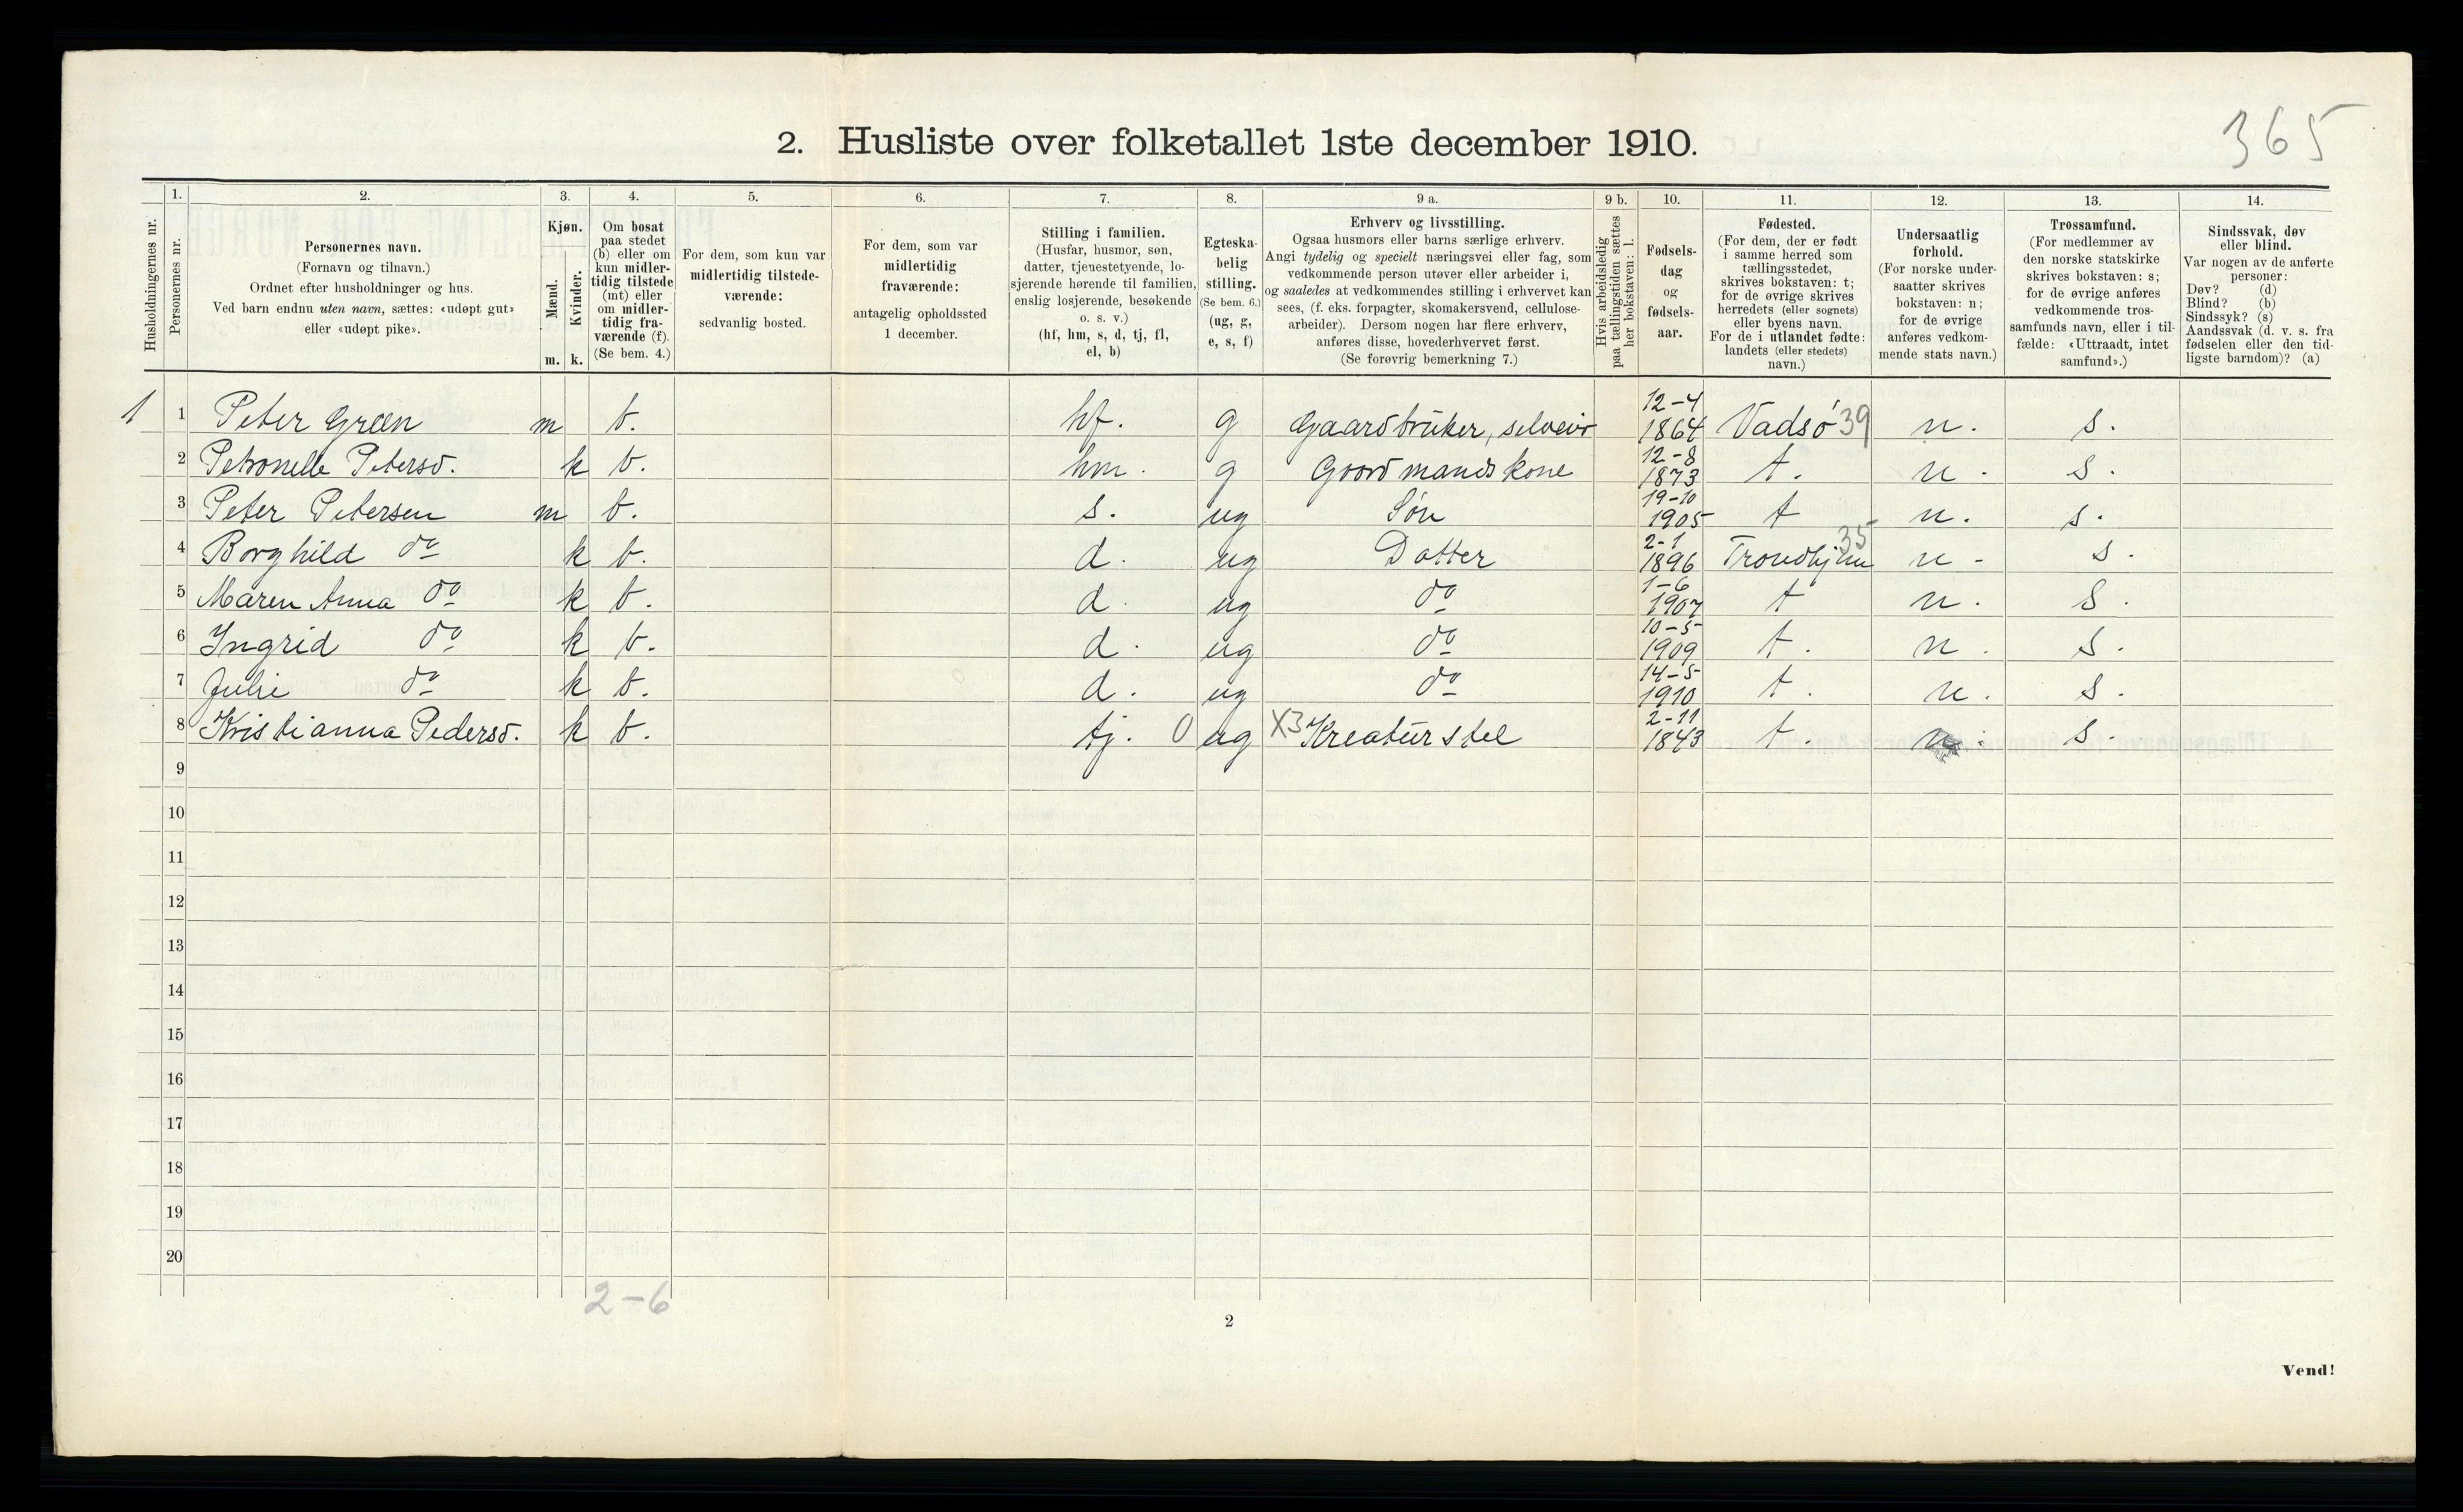 365
2. Husliste over folketallet 1ste december 1910.
Husholdningernes nr.
1. Personernes nr.
2. Personernes navn. (Fornavn og tilnavn.) Ordnet efter husholdninger og hus. Ved barn endnu uten navn, sættes: «udøpt gut» eller «udøpt pike».
3. Kjøn. Mænd. m. Kvinder. k.
4. Om bosat paa stedet (b) eller om kun midlertidig tilstede (mt) eller om midlertidig fraværende (f). (Se bem. 4.)
5. For dem, som kun var midlertidig tilstedeværende: sedvanlig bosted.
6. For dem, som var midlertidig fraværende: antagelig opholdssted 1 december.
7. Stilling i familien. (Husfar, husmor, søn, datter, tjenestetyende, losjerende hørende til familien, enslig losjerende, besøkende o. s. v.) (hf, hm, s, d, tj, fl, el, b)
8. Egteskabelig stilling. (Se bem. 6.) (ug, g, e, s, f)
9 a. Erhverv og livsstilling. Ogsaa husmors eller barns særlige erhverv. Angi tydelig og specielt næringsvei eller fag, som vedkommende person utøver eller arbeider i, og saaledes at vedkommendes stilling i erhvervet kan sees, (f. eks. forpagter, skomakersvend, cellulosearbeider). Dersom nogen har flere erhverv, anføres disse, hovederhvervet først. (Se forøvrig bemerkning 7.)
9 b. Hvis arbeidsledig paa tællingstiden sættes her bokstaven: l.
10. Fødselsdag og fødselsaar.
11. Fødested. (For dem, der er født i samme herred som tællingsstedet, skrives bokstaven: t; for de øvrige skrives herredets (eller sognets) eller byens navn. For de i utlandet fødte: landets (eller stedets) navn.)
12. Undersaatlig forhold. (For norske undersaatter skrives bokstaven: n; for de øvrige anføres vedkommende stats navn.)
13. Trossamfund. (For medlemmer av den norske statskirke skrives bokstaven: s; for de øvrige anføres vedkommende trossamfunds navn, eller i tilfælde: «Uttraadt, intet samfund».)
14. Sindssvak, døv eller blind. Var nogen av de anførte personer: Døv? (d) Blind? (b) Sindssyk? (s) Aandssvak (d. v. s. fra fødselen eller den tidligste barndom)? (a)
1 1 Peter Green m b. hf. g Gaardbruker, selveier 12-4 1864 Vadsö 39 n. s.
2 Petronelle Petersd. k b. hm. g Gaardmandskone 12-8 1873 t. n. s.
3 Peter Petersen m b. s. ug Sön 19-10 1905 t n. s.
4 Borghild do k b. d. ug Datter 2-1 1896 Trondhjem 35 n. s.
5 Maren Anna do k b. d. ug do 1-6 1907 t n. s.
6 Ingrid do k b. d. ug do 10-5 1909 t. n. s.
7 Julie do k b. d. ug do 14-5 1910 t. n. s.
8 Kristianna Pedersd. k b. tj. 0 ug X3 Kreaturstel 2-11 1843 t. n. s.
9
10
11
12
13
14
15
16
17
18
19
20
2-6
2
Vend!